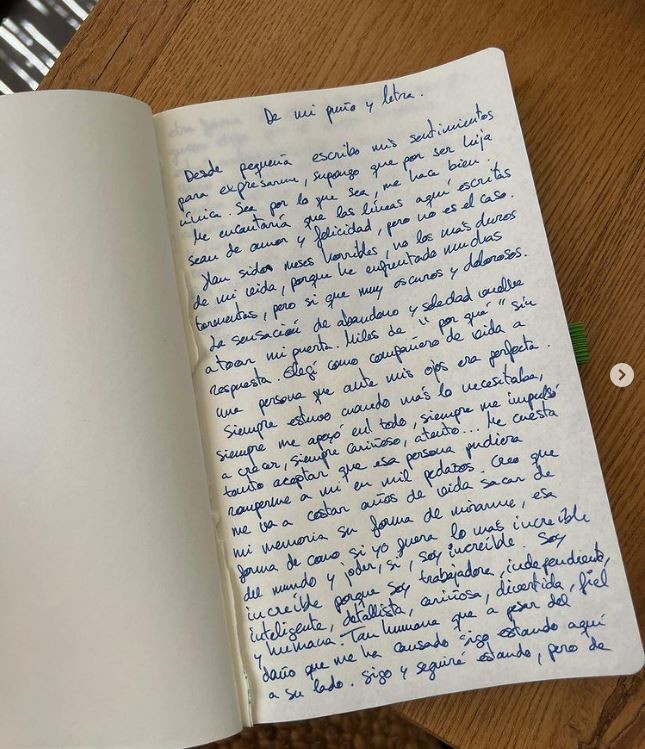 De mi puño y letra.
Desde pequeña escribo mis sentimientos
para expresarme, supongo que por ser hija
única. Sea por lo que sea, me hace bien.
Me encantaría que las líneas aquí escritas
sean de amor y felicidad, pero no es el caso.
Han sido meses horribles, no los más duros
de mi vida, porque he enfrentado muchas
tormentas, pero si que muy oscuros y dolorosos.
La sensación de abandono y soledad vuelve
a tocar mi puerta. Miles de "por qué" sin
respuesta. Elegí como compañero de vida a
una persona que ante mis ojos era perfecta.
Siempre estuvo cuando más lo necesitaba,
siempre me apoyó en todo, siempre me impulsó
a crecer, siempre cariñoso, atento... Me cuesta
tanto aceptar que esa persona pudiera
romperme a mi en mil pedazos. Creo que
me va a costar años de vida sacar de
mi memoria su forma de mirarme, esa
forma de como si yo fuera lo más increíble
del mundo y joder, si, soy increíble. Soy
increíble porque soy trabajadora, independiente,
inteligente, detallista, cariñosa, divertida, fiel
y humana. Tan humana que a pesar del
daño que me ha causado sigo estando aquí
a su lado. Sigo y seguiré estando, pero de